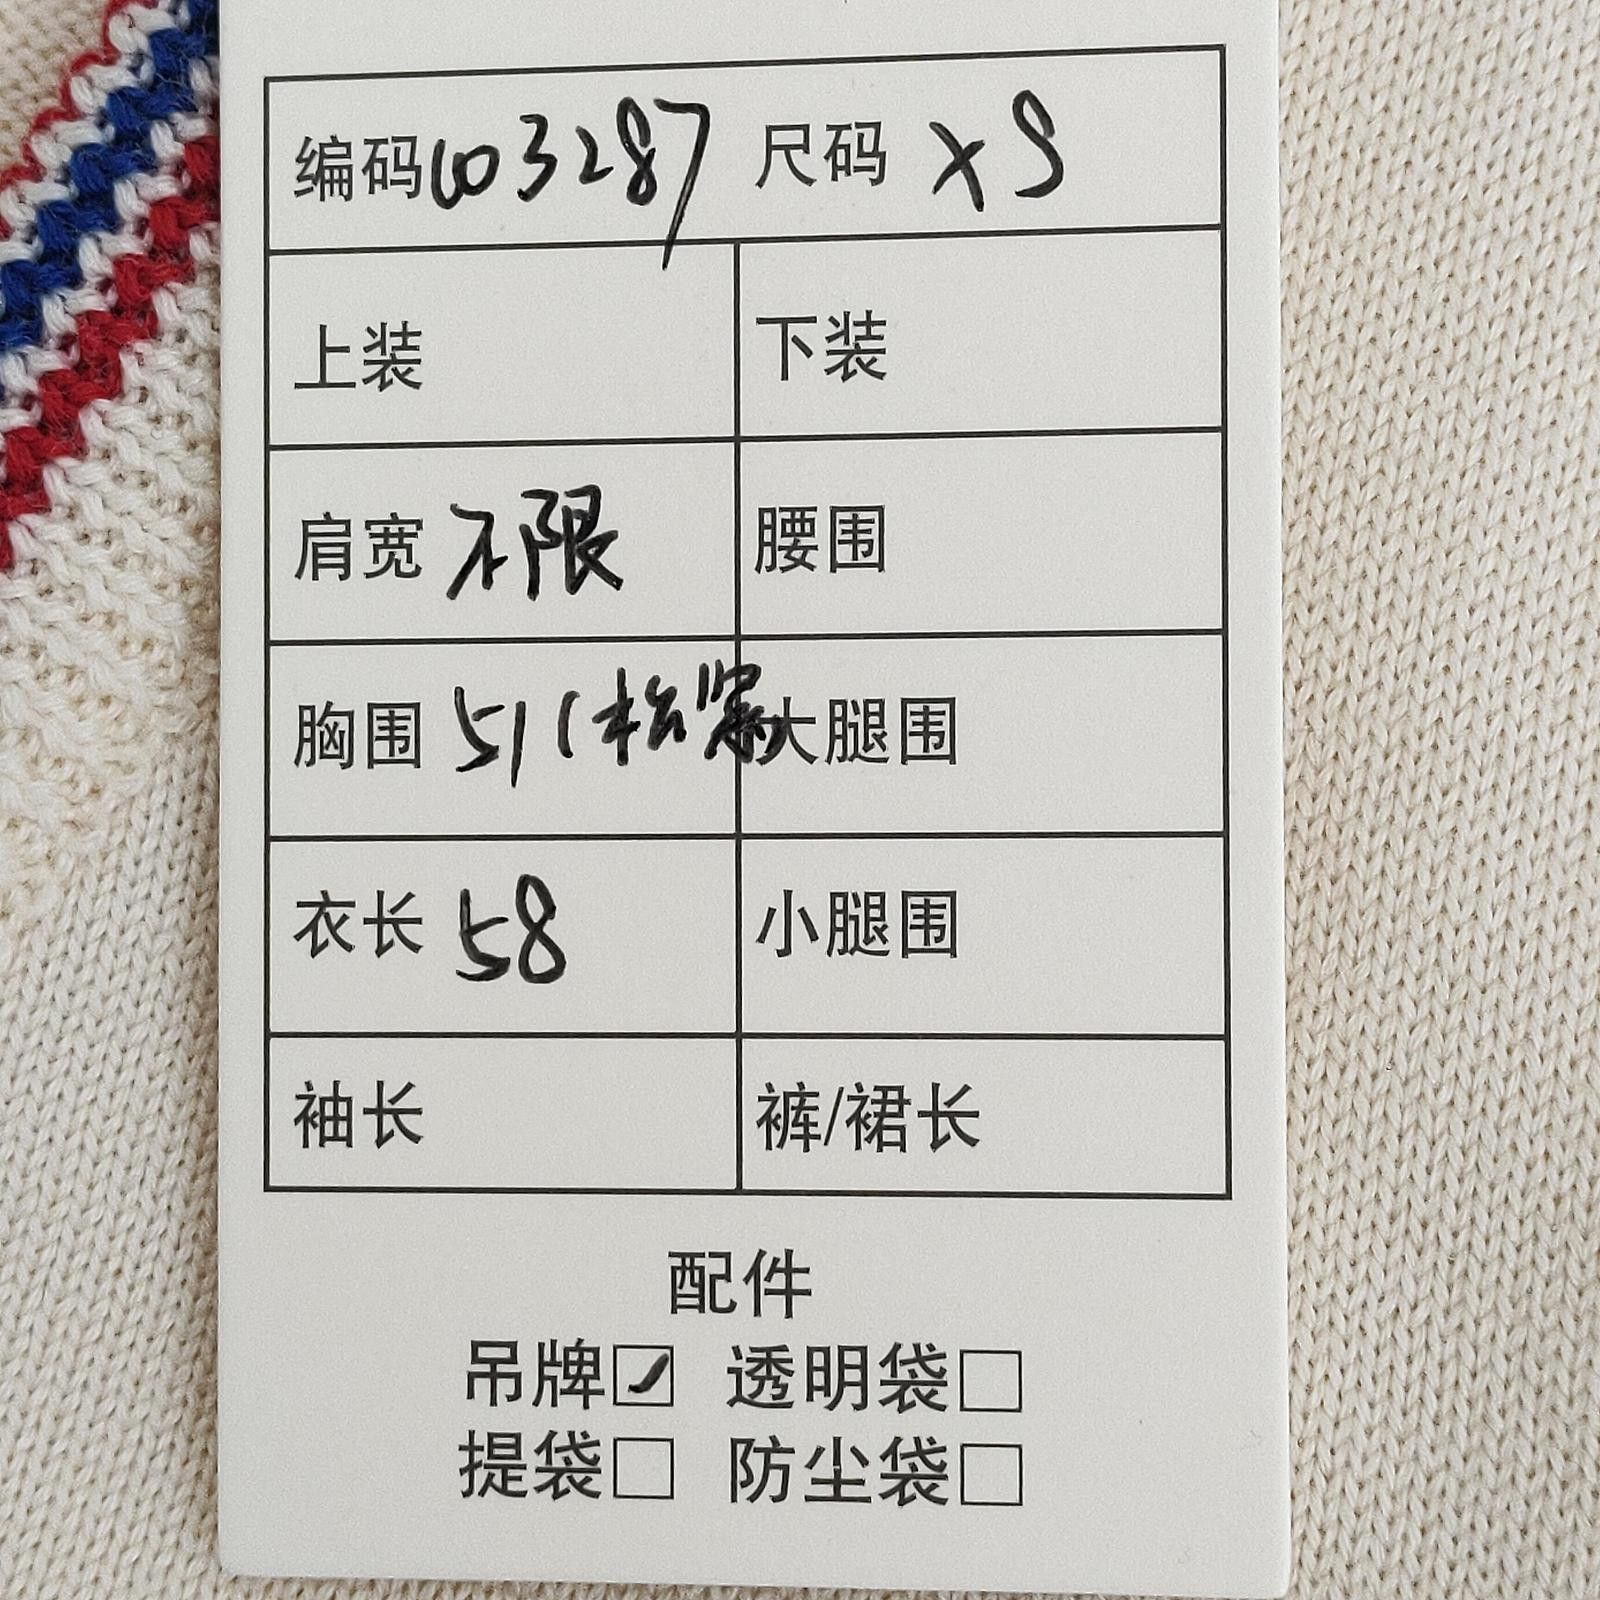 编码 003287 尺码 XS
上装 下装
肩宽 不限 腰围
胸围 51(松紧 大腿围
衣长 58 小腿围
袖长 裤/裙长
配件
吊牌☑ 透明袋□
提袋□ 防尘袋□